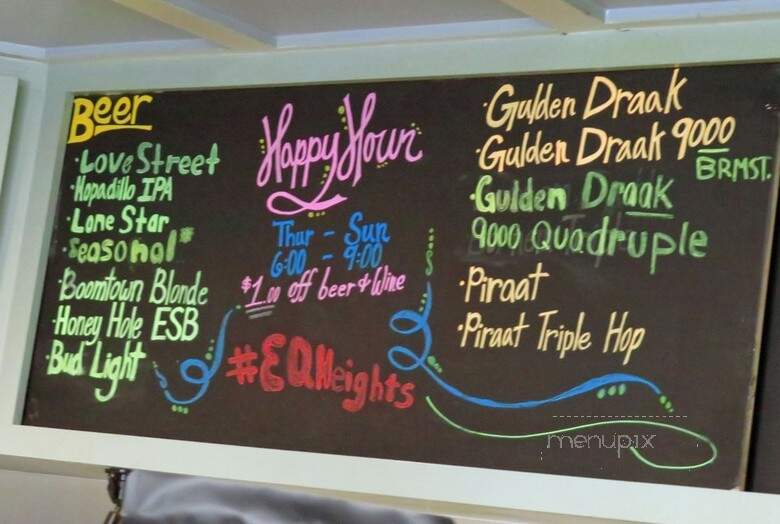 Beer
·Love Street
·Hopadillo IPA
·Lone Star
·Seasonal*
·Boomtown Blonde
·Honey Hole ESB
·Bud Light
Happy Hour
Thur - Sun
6:00 - 9:00
$1.00 off beer & Wine
#EQHeights
·Gulden Draak
·Gulden Draak 9000
BRMST.
·Gulden Draak
9000 Quadruple
·Piraat
·Piraat Triple Hop
menupix